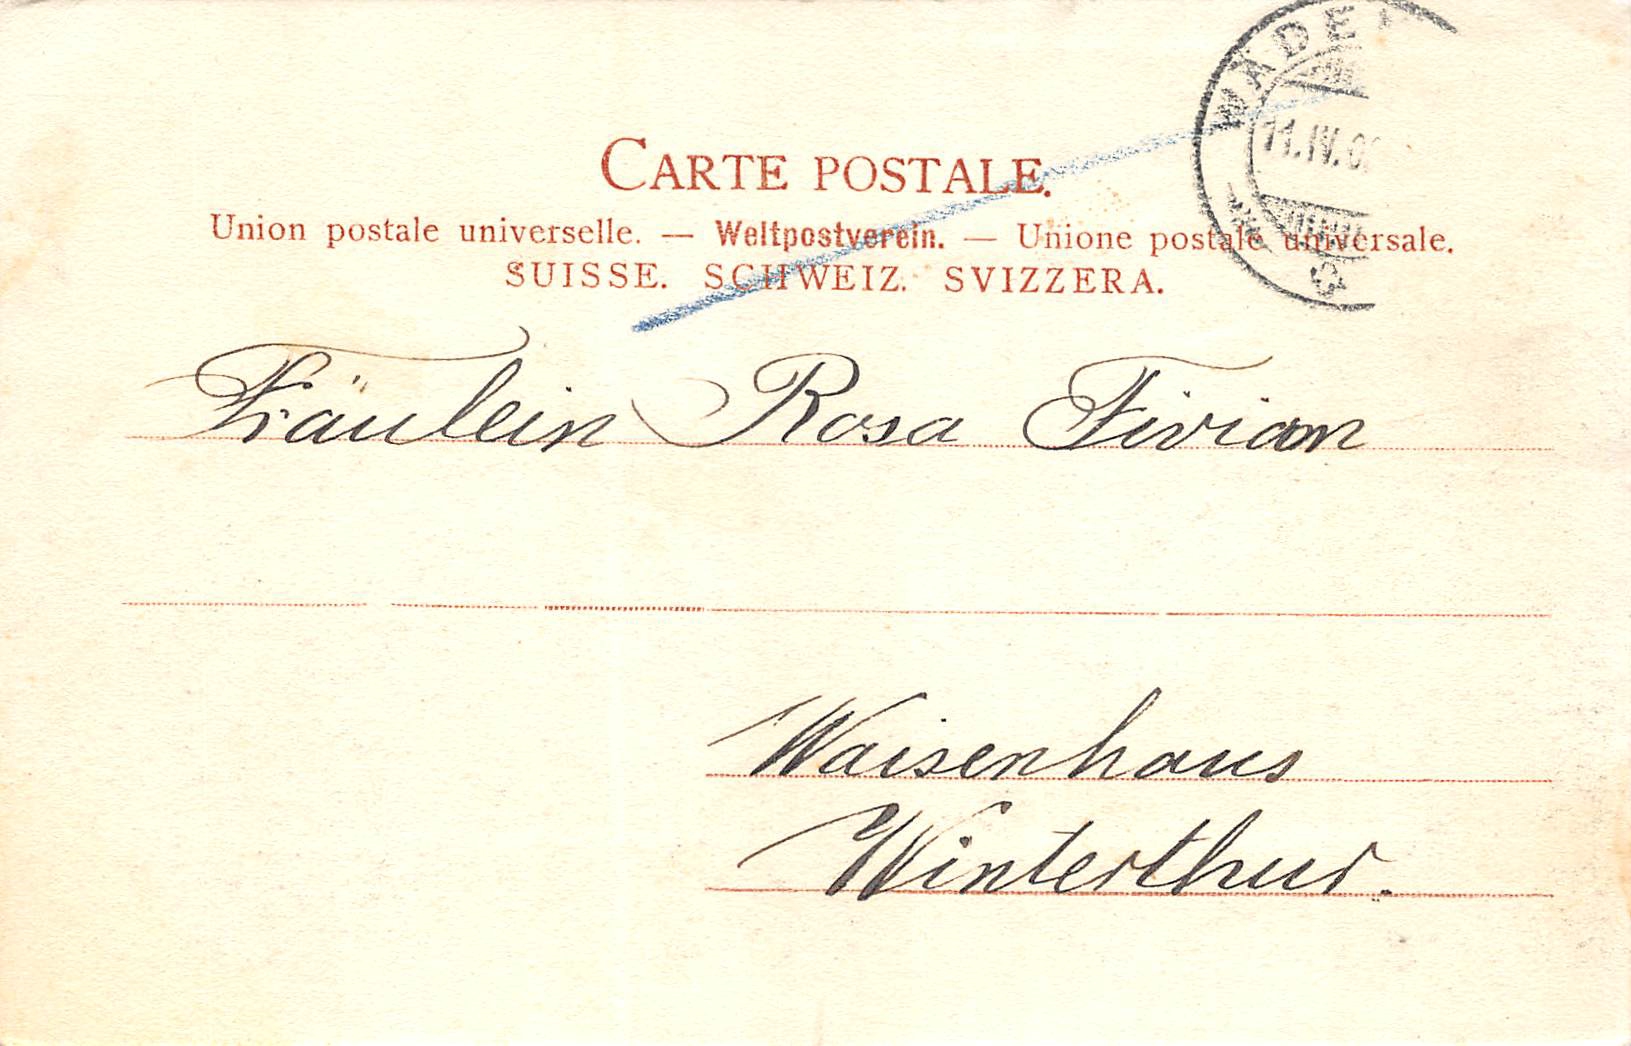 WÄDE
11.IV.0
CARTE POSTALE.
Union postale universelle. — Weltpostverein. — Unione postale universale.
SUISSE. SCHWEIZ. SVIZZERA.
Fräulein Rosa Fivian
Waisenhaus
Winterthur.